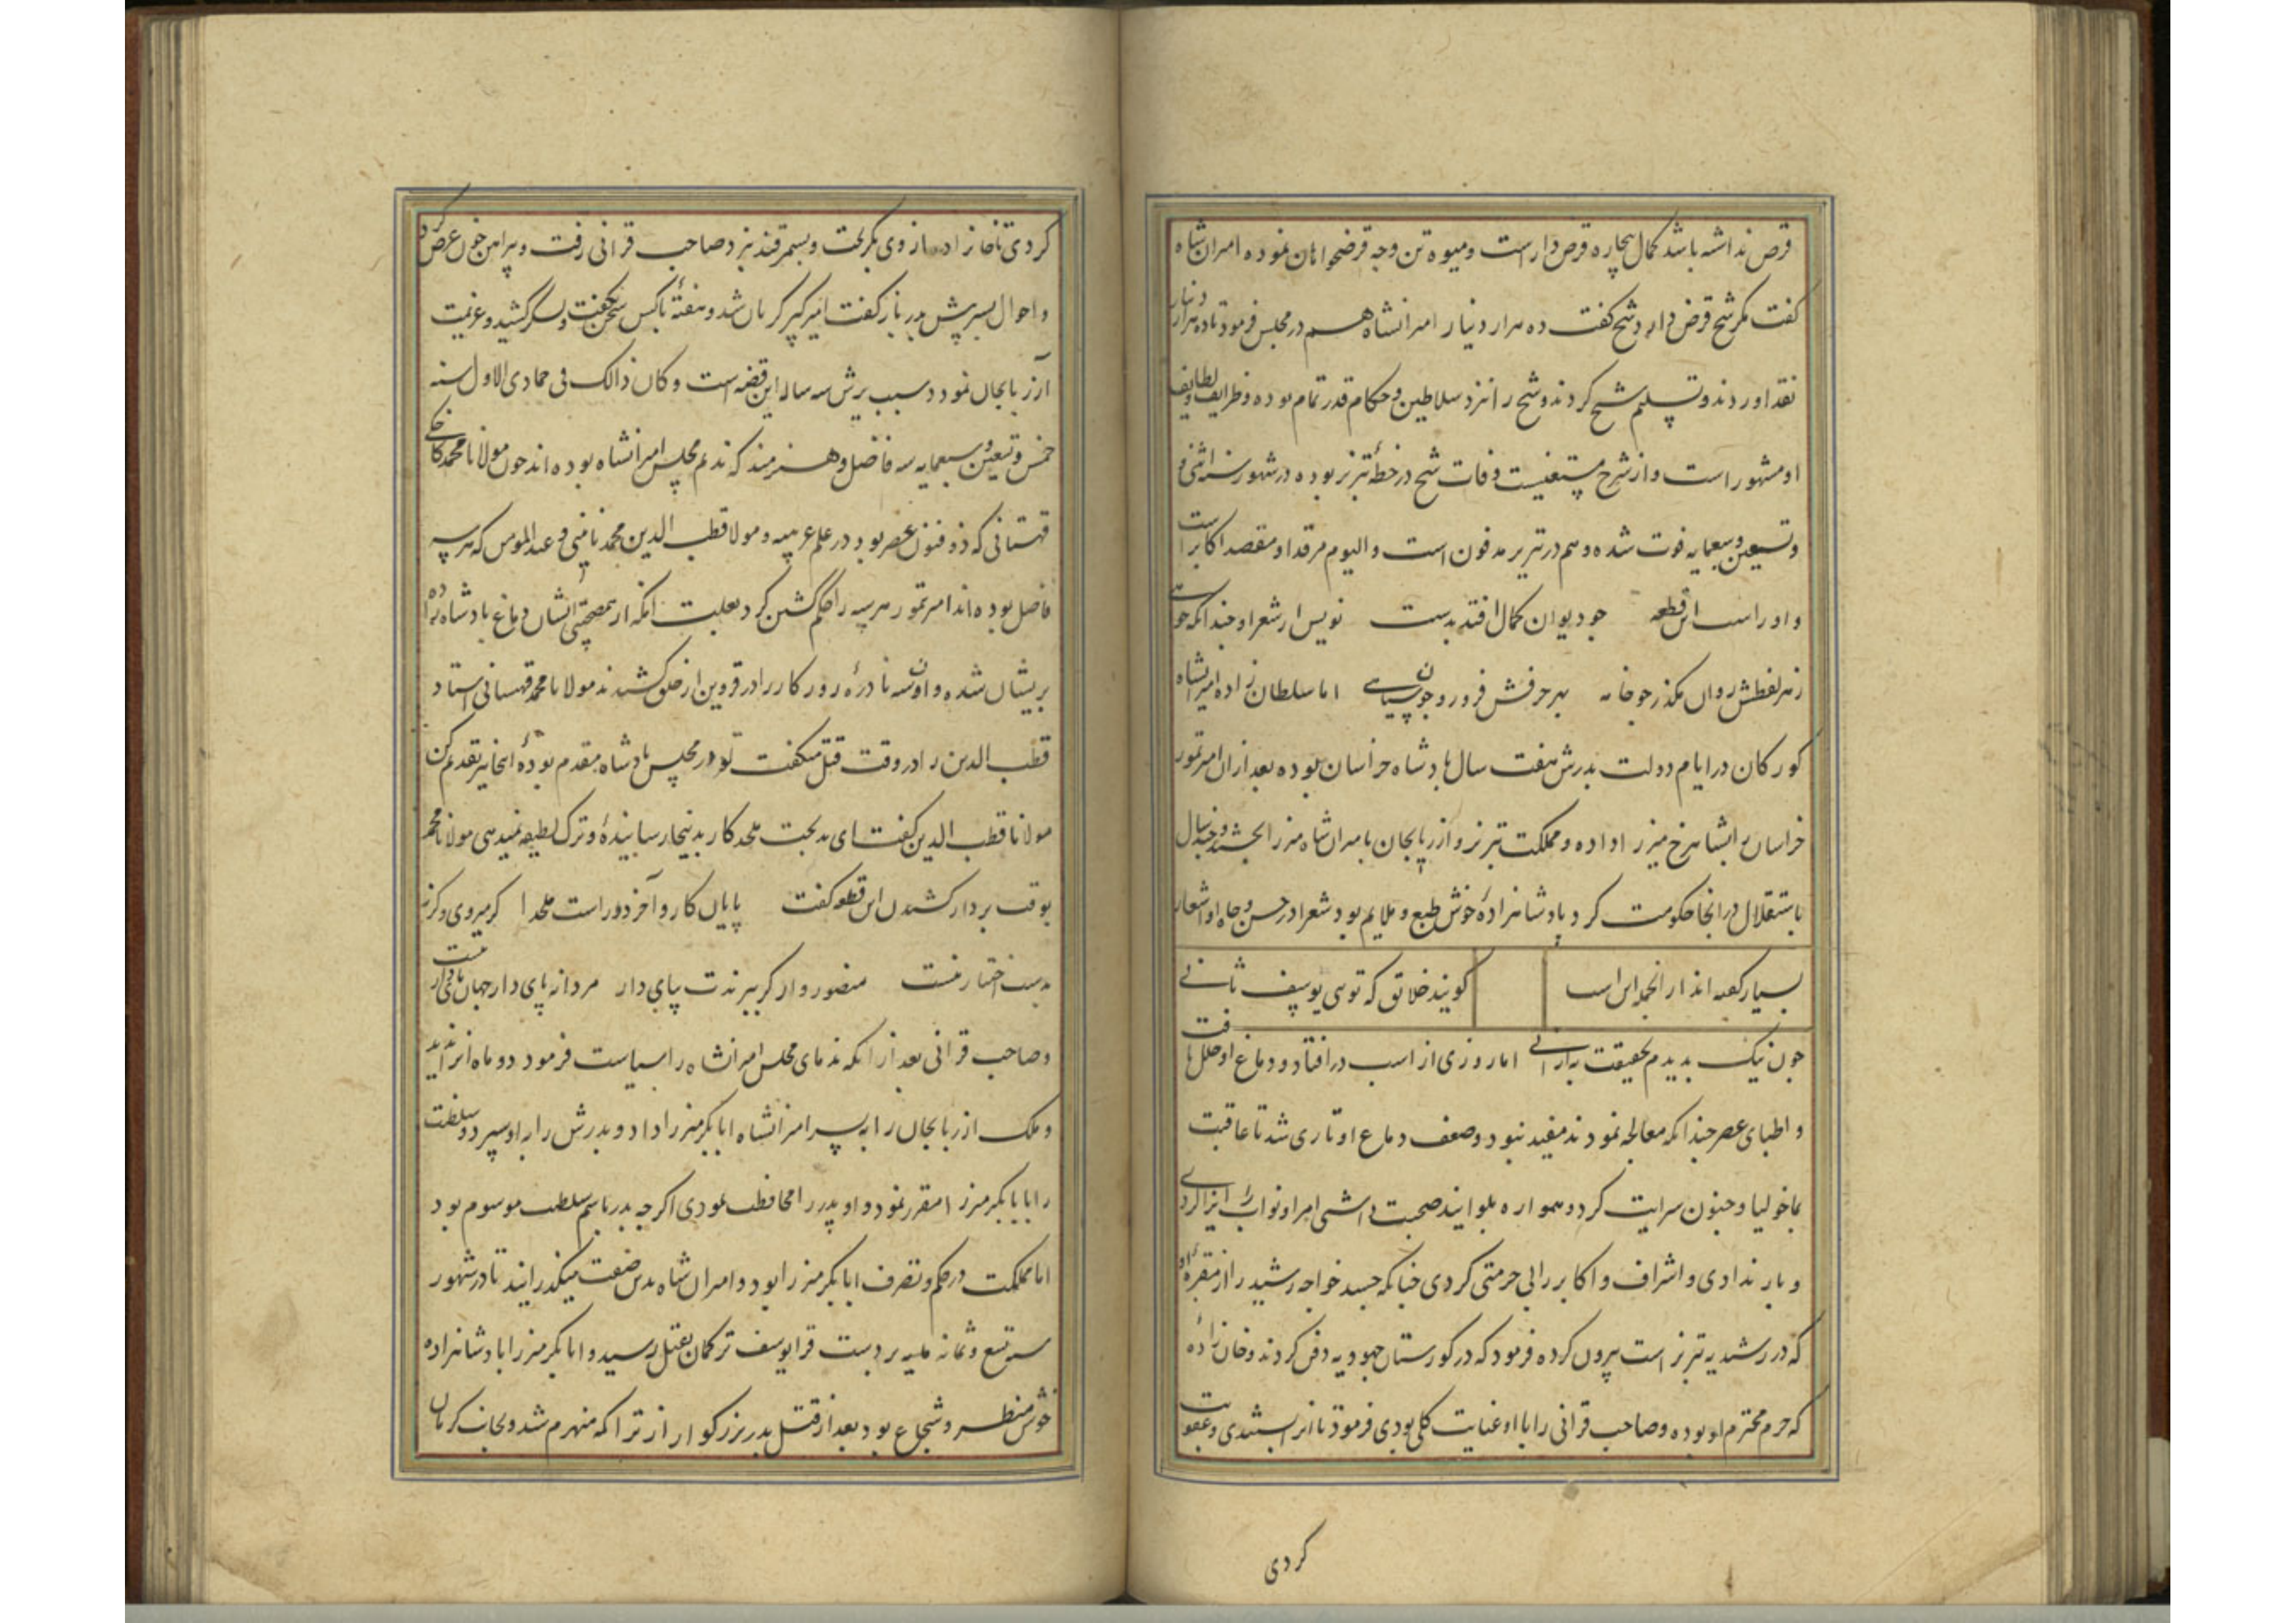 قرض نداشته باشد کمال بیچاره قرض دار است و میوه تن وجه قرضخواهان نموده امیران شاه
گفت مکر شیخ قرض دارد شیخ گفت ده هزار دینار امیرانشاه هم در مجلس فرمود تا ده هزار دینار
نقد اوردند و تسلیم شیخ کردند و شیخ را نزد سلاطین و حکام قدر تمام بوده و ظرایف و لطایف
او مشهور است و از شرح مستغنیست وفات شیخ در خطهٔ تبریز بوده در شهور سنه اثنی و
وتسعین وسبعمایه فوت شده و هم در تبریز مدفون است والیوم مرقد او مقصد اکابر است
و او راست این قطعه جو دیوان کمال افتد بدست نویس از شعر او جندانکه خواهی
ز هر لفظش روان مکذر جو خامه بهر حرفش فرو رو جون سیاهی اما سلطان زاده امیرانشاه
کورکان در ایام دولت بدرش هفت سال بادشاه خراسان بوده بعد از ان امیر تمور
خراسان را بشاهرخ میرزا داده و مملکت تبریز و آذربایجان بامیران شاه میرزا بخشید و جند سال
باستقلال در انجا حکومت کرد بادشاهزادهٔ خوش طبع و ملایم بود شعرا در حسن و جاه او اشعار
بسیار کفته اند از انجمله این است کویند خلایق که توئی یوسف ثانی
جون نیک بدیدم بحقیقت به ازانی اما روزی از اسب در افتاد و دماغ او خلل یافت
و اطبای عصر جندانکه معالجه نمودند مفید نبود و ضعف دماغ او تاری شد تا عاقبت
بماخولیا و جنون سرایت کرد و همواره بلوایند صحبت داشتی امرا و نواب را ایزا کردی
و بار ندادی و اشراف و اکابر را بی حرمتی کردی جنانکه جسد خواجه رشید را از مقبرهٔ او
که در رشیدیه تبریز است بیرون کرده فرمود که در کورستان جهودیه دفن کردند و خان زاده
که حرم محترم او بوده و صاحب قرانی را با او عنایت کلی بودی فرمود تا انرا بستدی و عقوبت
کردی
کردی تا خان زاده از وی بگریخت و بسمرقند نزد صاحب قرانی رفت و پیراهن خون عرض کرد
و احوال بسر پیش بدر باز کفت امیر کبیر گریان شد و هفتهٔ با کس سخن نکفت و لشکر کشید و عزیمت
آزربایجان نمود و سبب یرش سه ساله این قضیه است و کان ذالک فی جمادی الاول سنه
خمس وتسعین وسبعمایه سه فاضل و هنرمند که ندیم مجلس امیرانشاه بوده اند جون مولانا محمد کاخکی
قهستانی که ذو فنون عصر بود در علم عربیه و مولا قطب الدین محمد نائینی و عبد المومن که هر سه
فاضل بوده اند امیر تمور هر سه را حکم کشتن کرد بعلت انکه از همصحبتی ایشان دماغ بادشاه زاده
بریشان شده و اون سه نادرهٔ روزکار را در قزوین از حلق کشیدند مولانا محمد قهستانی استاد
قطب الدین را در وقت قتل میکفت تو در مجلس بادشاه مقدم بودهٔ اینجا نیز تقدم کن
مولانا قطب الدین کفت ای بدبخت ملحد کار بدینجا رسانیدهٔ و ترک لطیفه نمیدهی مولانا محمد
بوقت بردار کشیدن این قطعه کفت پایان کار و آخر دور است ملحدا کر میروی وکرنه
بدست اختیار نیست منصور وار کر ببرندت پای دار مردانه پای دار جهان پایدار نیست
و صاحب قرانی بعد از انکه ندمای مجلس امیرانشاه را سیاست فرمود دو ماه انرا ندید
و ملک آذربایجان را به پسر امیرانشاه ابابکر میرزا داد و بدرش را باو سپرد و سلطنت
را بابابکر میرزا مقرر نمود و او پدر را محافظت نمودی اکرجه بدر باسم سلطنت موسوم بود
اما مملکت در حکم و تصرف ابابکر میرزا بود و امیران شاه بدین صفت میکذرانید تا در شهور
سنه تسع وثمانمایه بر دست قرایوسف ترکمان بقتل رسید و ابابکر میرزا بادشاهزاده
خوش منظر و شجاع بود بعد از قتل بدر بزرکوار از تراکمه منهزم شد و بجانب کرمان